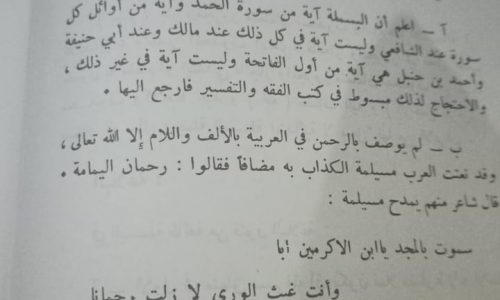 آ ــ اعلم أن البسملة آية من سورة الحمد وآية من أوائل كل
سورة عند الشافعي وليست آية في كل ذلك عند مالك وعند أبي حنيفة
وأحمد بن حنبل هي آية من أول الفاتحة وليست آية في غير ذلك ،
والاحتجاج لذلك مبسوط في كتب الفقه والتفسير فارجع اليها .
ب ــ لم يوصف بالرحمن في العربية بالألف واللام إلا الله تعالى ،
وقد نعتت العرب مسيلمة الكذاب به مضافاً فقالوا : رحمان اليمامة .
قال شاعر منهم يمدح مسيلمة :
سموت بالمجد ياابن الاكرمين أبا
وأنت غيث الورى لا زلت رحمانا